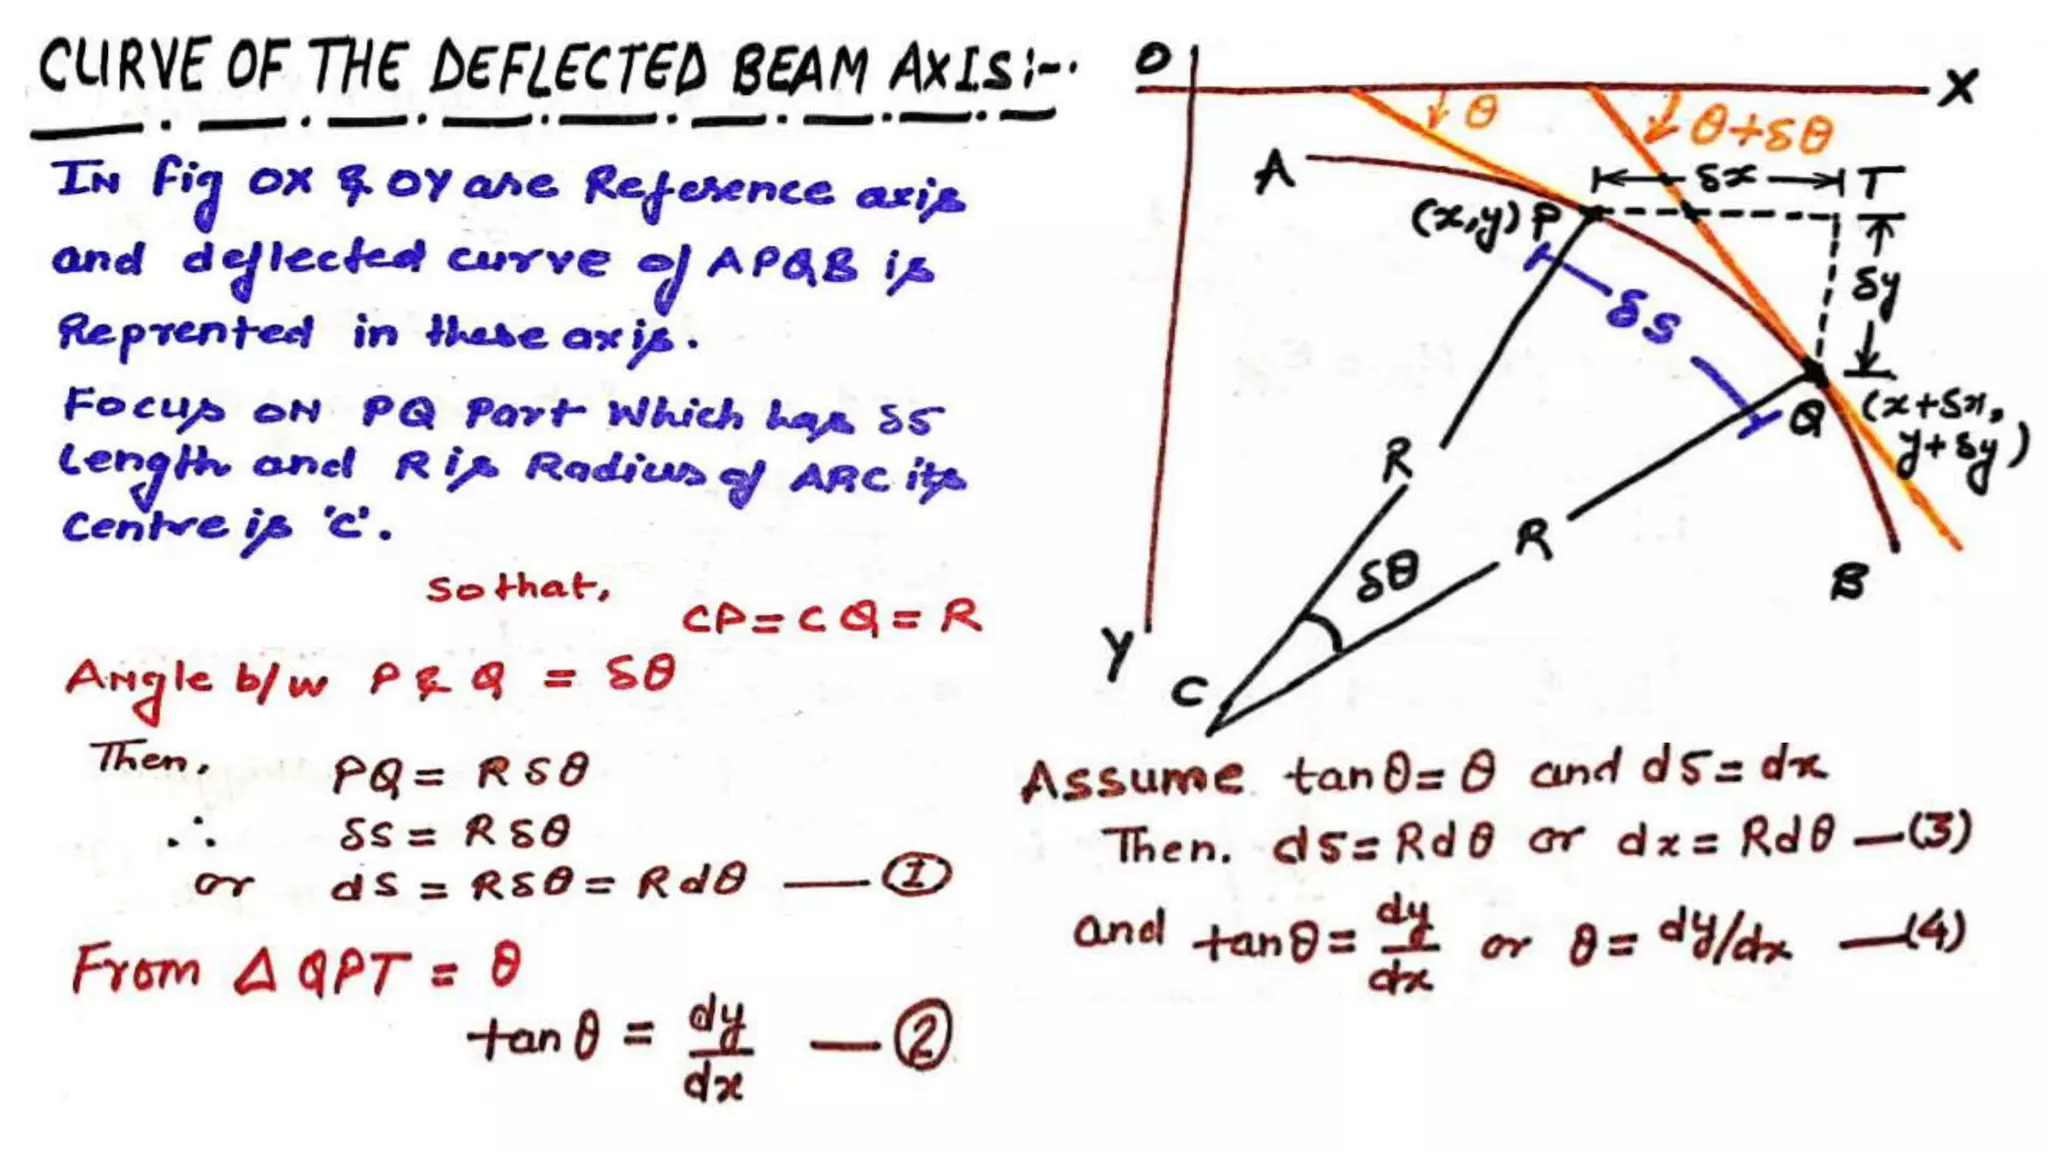 CURVE OF THE DEFLECTED BEAM AXIS:-.
IN fig OX & OY are Reference axis
and deflected curve of APQB is
Reprented in these axis.
FOCUS ON PQ Part Which has δS
Length and R is Radius of ARC its
Centre is 'C'.
So that,
CP = CQ = R
Angle b/w P & Q = δθ
Then, PQ = R δθ
∴ δS = R δθ
or dS = Rδθ = Rdθ — ①
From Δ QPT = θ
tan θ = dy/dx — ②
O
X
θ
θ+δθ
A
δx
T
(x,y) P
δy
δS
Q
(x+δx,
y+δy)
R
R
δθ
B
Y
C
Assume tanθ = θ and dS = dx
Then, dS = Rdθ or dx = Rdθ —(3)
and tanθ = dy/dx or θ = dy/dx —(4)